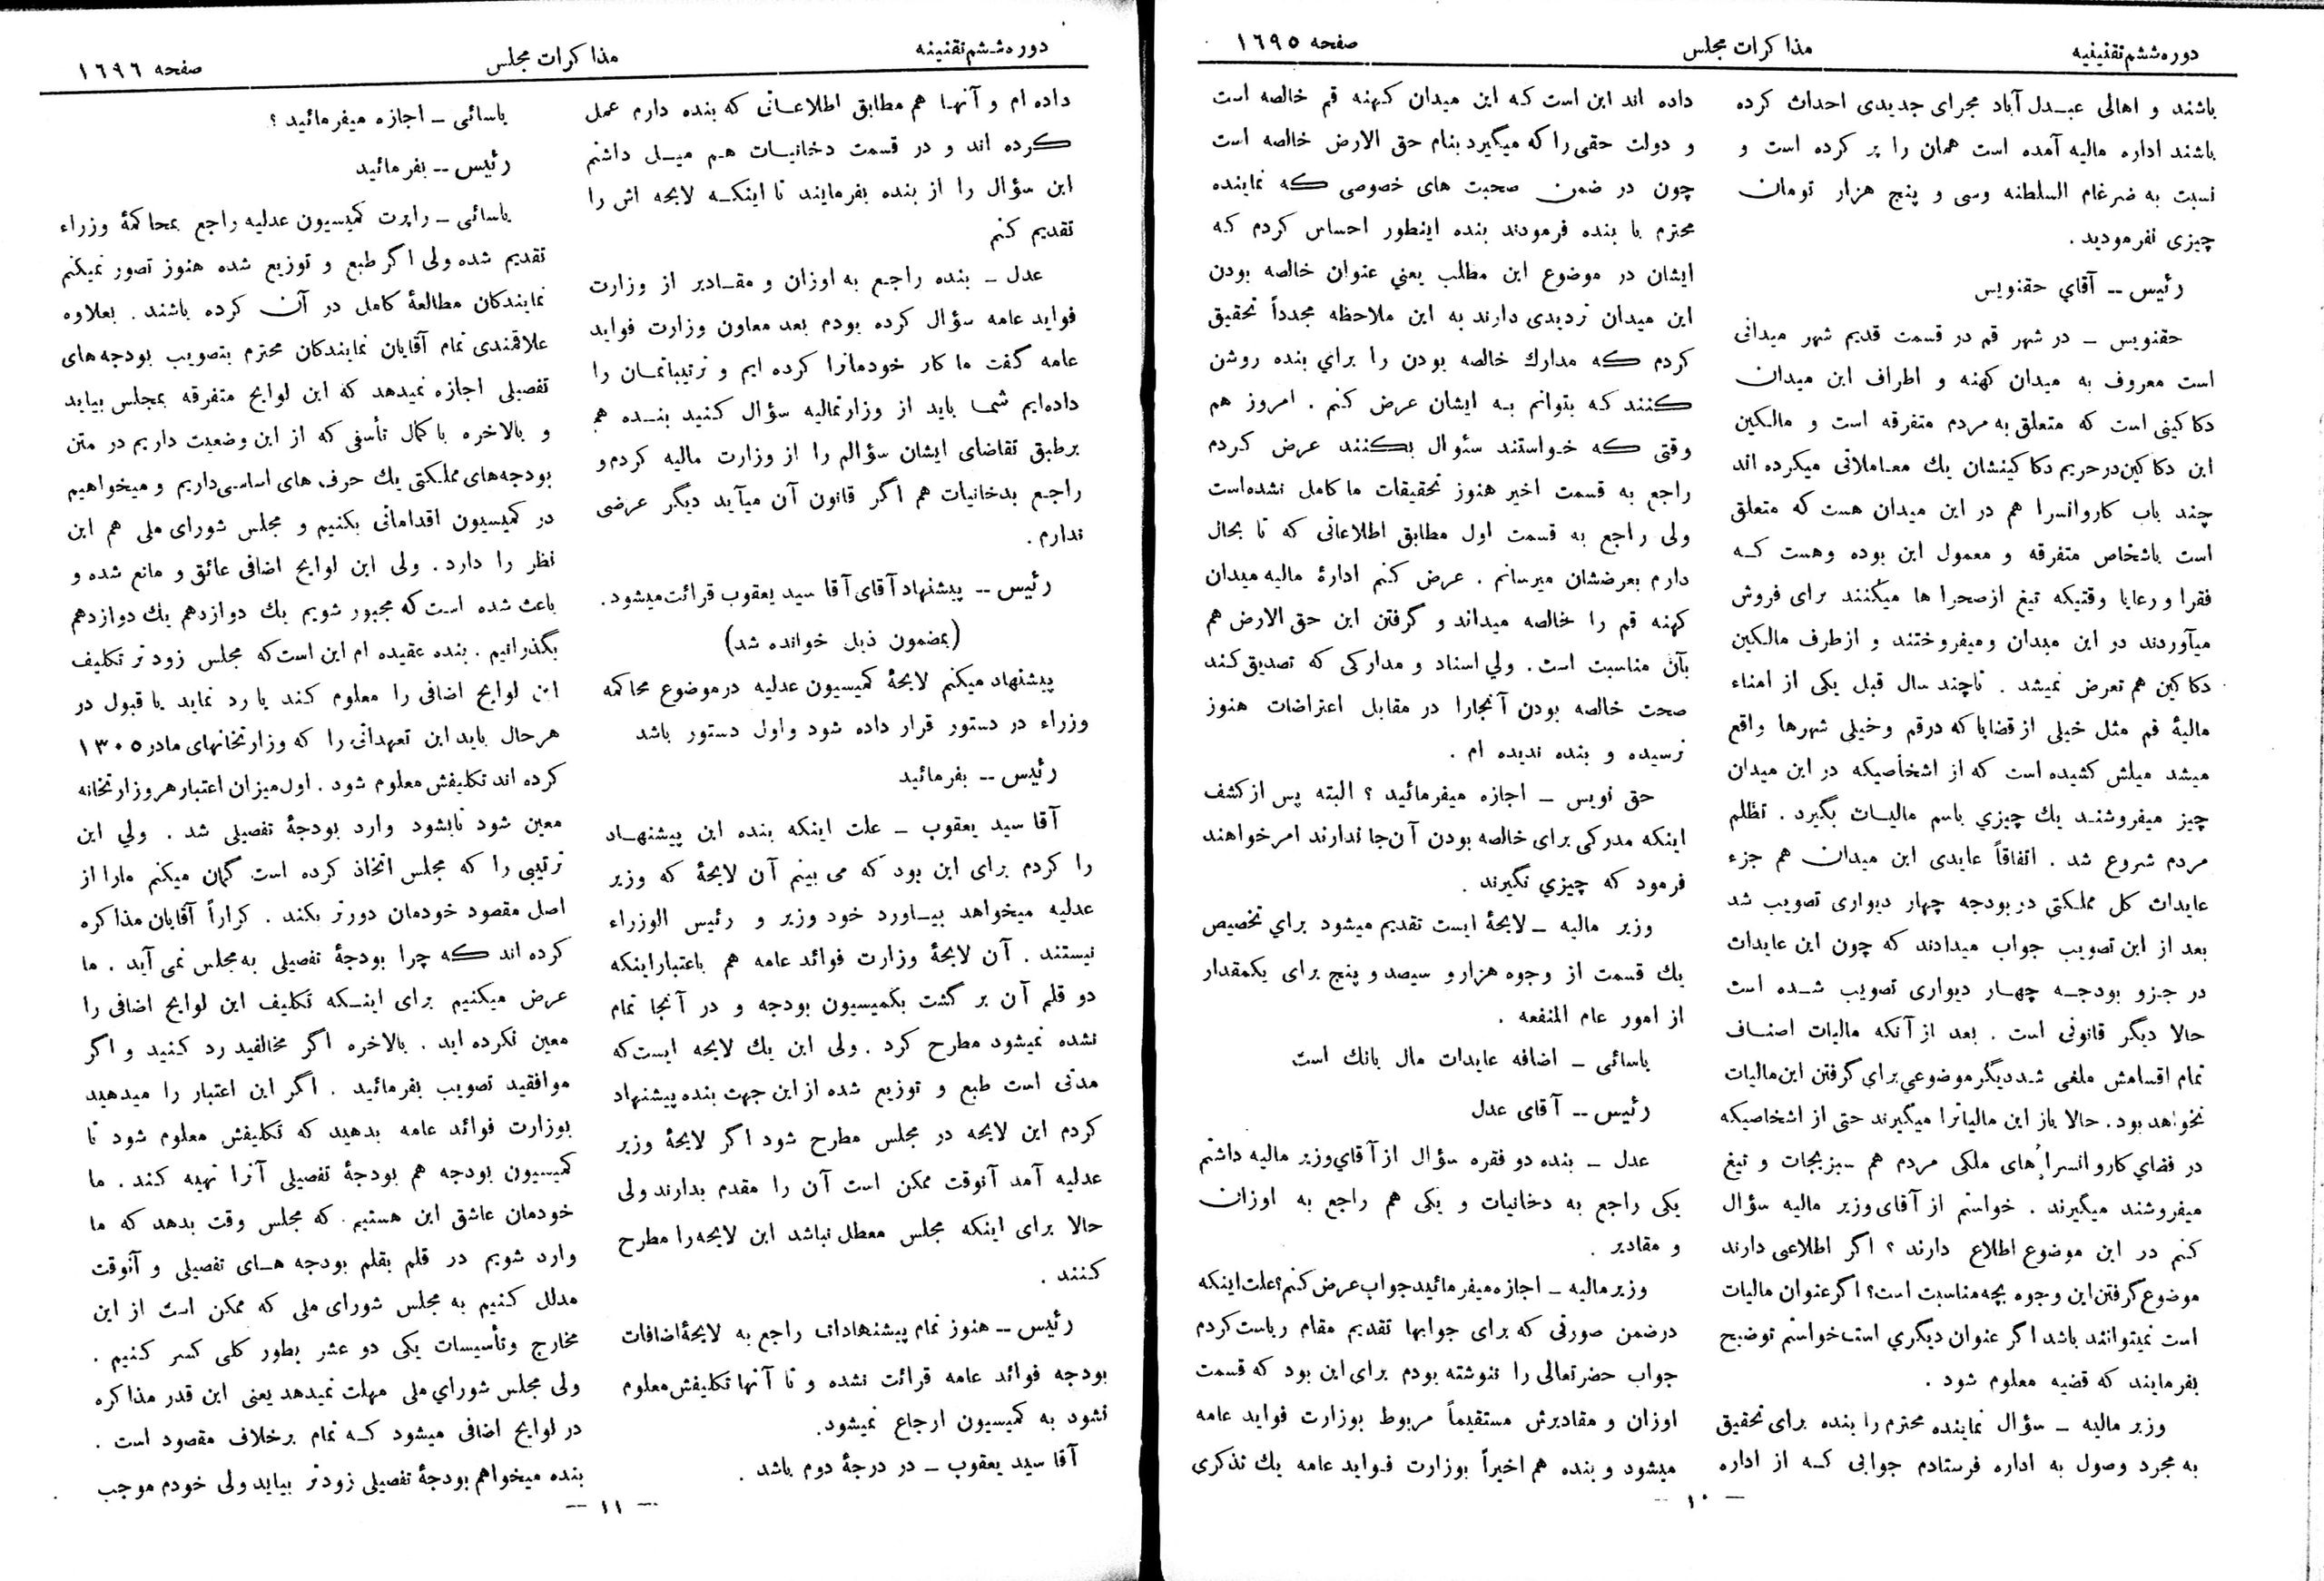 دوره ششم تقنینیه
مذاکرات مجلس
صفحه ۱۶۹۵
باشند و اهالی عبدل آباد مجرای جدیدی احداث کرده
باشند اداره مالیه آمده است همان را پر کرده است و
نسبت به ضرغام السلطنه وسی و پنج هزار تومان
چیزی نفرمودید .
رئیس -- آقاي حقنویس
حقنویس - در شهر قم در قسمت قدیم شهر میدانی
است معروف به میدان کهنه و اطراف این میدان
دکاکینی است که متعلق به مردم متفرقه است و مالکین
این دکاکین در حریم دکاکینشان یك معاملاتی میکرده اند
چند باب کاروانسرا هم در این میدان هست که متعلق
است باشخاص متفرقه و معمول این بوده وهست که
فقرا و رعایا وقتیکه تیغ از صحرا ها میکنند برای فروش
میآوردند در این میدان ومیفروختند و از طرف مالکین
دکاکین هم تعرض نمیشد . تاچند سال قبل یکی از امناء
مالیهٔ قم مثل خیلی از قضایا که درقم وخیلی شهرها واقع
میشد میلش کشیده است که از اشخاصیکه در این میدان
چیز میفروشند یك چیزي باسم مالیات بگیرد . تظلم
مردم شروع شد . اتفاقاً عایدی این میدان هم جزء
عایدات کل مملکتی در بودجه چهار دیواری تصویب شد
بعد از این تصویب جواب میدادند که چون این عایدات
در جزو بودجه چهار دیواری تصویب شده است
حالا دیگر قانونی است . بعد از آنکه مالیات اصناف
تمام اقسامش ملغی شد دیگر موضوعي براي گرفتن این مالیات
نخواهد بود . حالا باز این مالیاترا میگیرند حتی از اشخاصیکه
در فضاي کاروانسراهای ملکی مردم هم سبزیجات و تیغ
میفروشند میگیرند . خواستم از آقای وزیر مالیه سؤال
کنم در این موضوع اطلاع دارند ؟ اگر اطلاعی دارند
موضوع گرفتن این وجوه بچه مناسبت است؟ اگر عنوان مالیات
است نمیتوانند باشد اگر عنوان دیگري است خواستم توضیح
بفرمایند که قضیه معلوم شود .
وزیر مالیه - سؤال نماینده محترم را بنده برای تحقیق
به مجرد وصول به اداره فرستادم جوابی که از اداره
داده اند این است که این میدان کهنه قم خالصه است
و دولت حقی را که میگیرد بنام حق الارض خالصه است
چون در ضمن صحبت های خصوصی که نماینده
محترم با بنده فرمودند بنده اینطور احساس کردم که
ایشان در موضوع این مطلب یعني عنوان خالصه بودن
این میدان تردیدی دارند به این ملاحظه مجدداً تحقیق
کردم که مدارك خالصه بودن را براي بنده روشن
کنند که بتوانم به ایشان عرض کنم . امروز هم
وقتی که خواستند سئوال بکنند عرض کردم
راجع به قسمت اخیر هنوز تحقیقات ما کامل نشده است
ولی راجع به قسمت اول مطابق اطلاعاتی که تا بحال
دارم بعرضشان میرسانم . عرض کنم ادارهٔ مالیه میدان
کهنه قم را خالصه میداند و گرفتن این حق الارض هم
بآن مناسبت است . ولي اسناد و مدارکی که تصدیق کند
صحت خالصه بودن آنجارا در مقابل اعتراضات هنوز
نرسیده و بنده ندیده ام .
حق نویس - اجازه میفرمائید ؟ البته پس از کشف
اینکه مدرکی برای خالصه بودن آن جا ندارند امر خواهند
فرمود که چیزي نگیرند .
وزیر مالیه - لایحهٔ ایست تقدیم میشود براي تخصیص
یك قسمت از وجوه هزار و سیصد و پنج برای یکمقدار
از امور عام المنفعه .
یاسائی - اضافه عایدات مال بانك است
رئیس -- آقای عدل
عدل - بنده دو فقره سؤال از آقاي وزیر مالیه داشتم
یکی راجع به دخانیات و یکی هم راجع به اوزان
و مقادیر .
وزیر مالیه - اجازه میفرمائید جواب عرض کنم؟ علت اینکه
درضمن صورتی که برای جوابها تقدیم مقام ریاست کردم
جواب حضرتعالی را ننوشته بودم برای این بود که قسمت
اوزان و مقادیرش مستقیماً مربوط بوزارت فواید عامه
میشود و بنده هم اخیراً بوزارت فواید عامه یك تذکری
— ۱۰ —
دوره ششم تقنینیه
مذاکرات مجلس
صفحه ۱۶۹۶
داده ام و آنها هم مطابق اطلاعاتی که بنده دارم عمل
کرده اند و در قسمت دخانیات هم میل داشتم
این سؤال را از بنده بفرمایند تا اینکه لایحه اش را
تقدیم کنم
عدل - بنده راجع به اوزان و مقادیر از وزارت
فواید عامه سؤال کرده بودم بعد معاون وزارت فواید
عامه گفت ما کار خودمانرا کرده ایم و ترتیباتمان را
داده‌ایم شما باید از وزارتمالیه سؤال کنید بنده هم
برطبق تقاضای ایشان سؤالم را از وزارت مالیه کردم و
راجع بدخانیات هم اگر قانون آن میآید دیگر عرضی
ندارم .
رئیس -- پیشنهاد آقای آقا سید یعقوب قرائت میشود .
(بمضمون ذیل خوانده شد)
پیشنهاد میکنم لایحهٔ کمیسیون عدلیه در موضوع محاکمه
وزراء در دستور قرار داده شود واول دستور باشد
رئیس -- بفرمائید
آقا سید یعقوب - علت اینکه بنده این پیشنهاد
را کردم برای این بود که می بینم آن لایحهٔ که وزیر
عدلیه میخواهد بیاورد خود وزیر و رئیس الوزراء
نیستند . آن لایحهٔ وزارت فوائد عامه هم باعتبار اینکه
دو قلم آن بر گشت بکمیسیون بودجه و در آنجا تمام
نشده نمیشود مطرح کرد . ولی این یك لایحه ایست که
مدتی است طبع و توزیع شده از این جهت بنده پیشنهاد
کردم این لایحه در مجلس مطرح شود اگر لایحهٔ وزیر
عدلیه آمد آنوقت ممکن است آن را مقدم بدارند ولی
حالا برای اینکه مجلس معطل نباشد این لایحه را مطرح
کنند .
رئیس -- هنوز تمام پیشنهادات راجع به لایحهٔ اضافات
بودجه فوائد عامه قرائت نشده و تا آنها تکلیفش معلوم
نشود به کمیسیون ارجاع نمیشود.
آقا سید یعقوب - در درجهٔ دوم باشد .
یاسائی - اجازه میفرمائید ؟
رئیس -- بفرمائید
یاسائی - راپرت کمیسیون عدلیه راجع بمحاکمهٔ وزراء
تقدیم شده ولی اگر طبع و توزیع شده هنوز تصور نمیکنم
نمایندکان مطالعهٔ کامل در آن کرده باشند . بعلاوه
علاقمندی تمام آقایان نمایندکان محترم بتصویب بودجه های
تفصیلی اجازه نمیدهد که این لوایح متفرقه بمجلس بیاید
و بالاخره با کمال تأسفی که از این وضعیت داریم در متن
بودجه‌های مملکتی یك حرف های اساسی داریم و میخواهیم
در کمیسیون اقداماتی بکنیم و مجلس شورای ملی هم این
نظر را دارد . ولی این لوایح اضافی عائق و مانع شده و
باعث شده است که مجبور شویم یك دوازدهم یك دوازدهم
بگذرانیم . بنده عقیده ام این است که مجلس زود تر تکلیف
این لوایح اضافی را معلوم کند یا رد نماید یا قبول در
هر حال باید این تعهداتی را که وزارتخانهای مادر ۱۳۰۵
کرده اند تکلیفش معلوم شود . اول میزان اعتبار هر وزارتخانه
معین شود تابشود وارد بودجهٔ تفصیلی شد . ولي این
ترتیبی را که مجلس اتخاذ کرده است گمان میکنم مارا از
اصل مقصود خودمان دورتر بکند . کراراً آقایان مذاکره
کرده اند که چرا بودجهٔ تفصیلی به مجلس نمی آید . ما
عرض میکنیم برای اینکه تکلیف این لوایح اضافی را
معین نکرده اید . بالاخره اگر مخالفید رد کنید و اگر
موافقید تصویب بفرمائید . اگر این اعتبار را میدهید
بوزارت فوائد عامه بدهید که تکلیفش معلوم شود تا
کمیسیون بودجه هم بودجهٔ تفصیلی آنرا تهیه کند . ما
خودمان عاشق این هستیم که مجلس وقت بدهد که ما
وارد شویم در قلم بقلم بودجه های تفصیلی و آنوقت
مدلل کنیم به مجلس شورای ملی که ممکن است از این
مخارج وتأسیسات یکی دو عشر بطور کلی کسر کنیم .
ولی مجلس شوراي ملی مهلت نمیدهد یعنی این قدر مذاکره
در لوایح اضافی میشود که تمام برخلاف مقصود است .
بنده میخواهم بودجهٔ تفصیلی زودتر بیاید ولی خودم موجب
— ۱۱ —